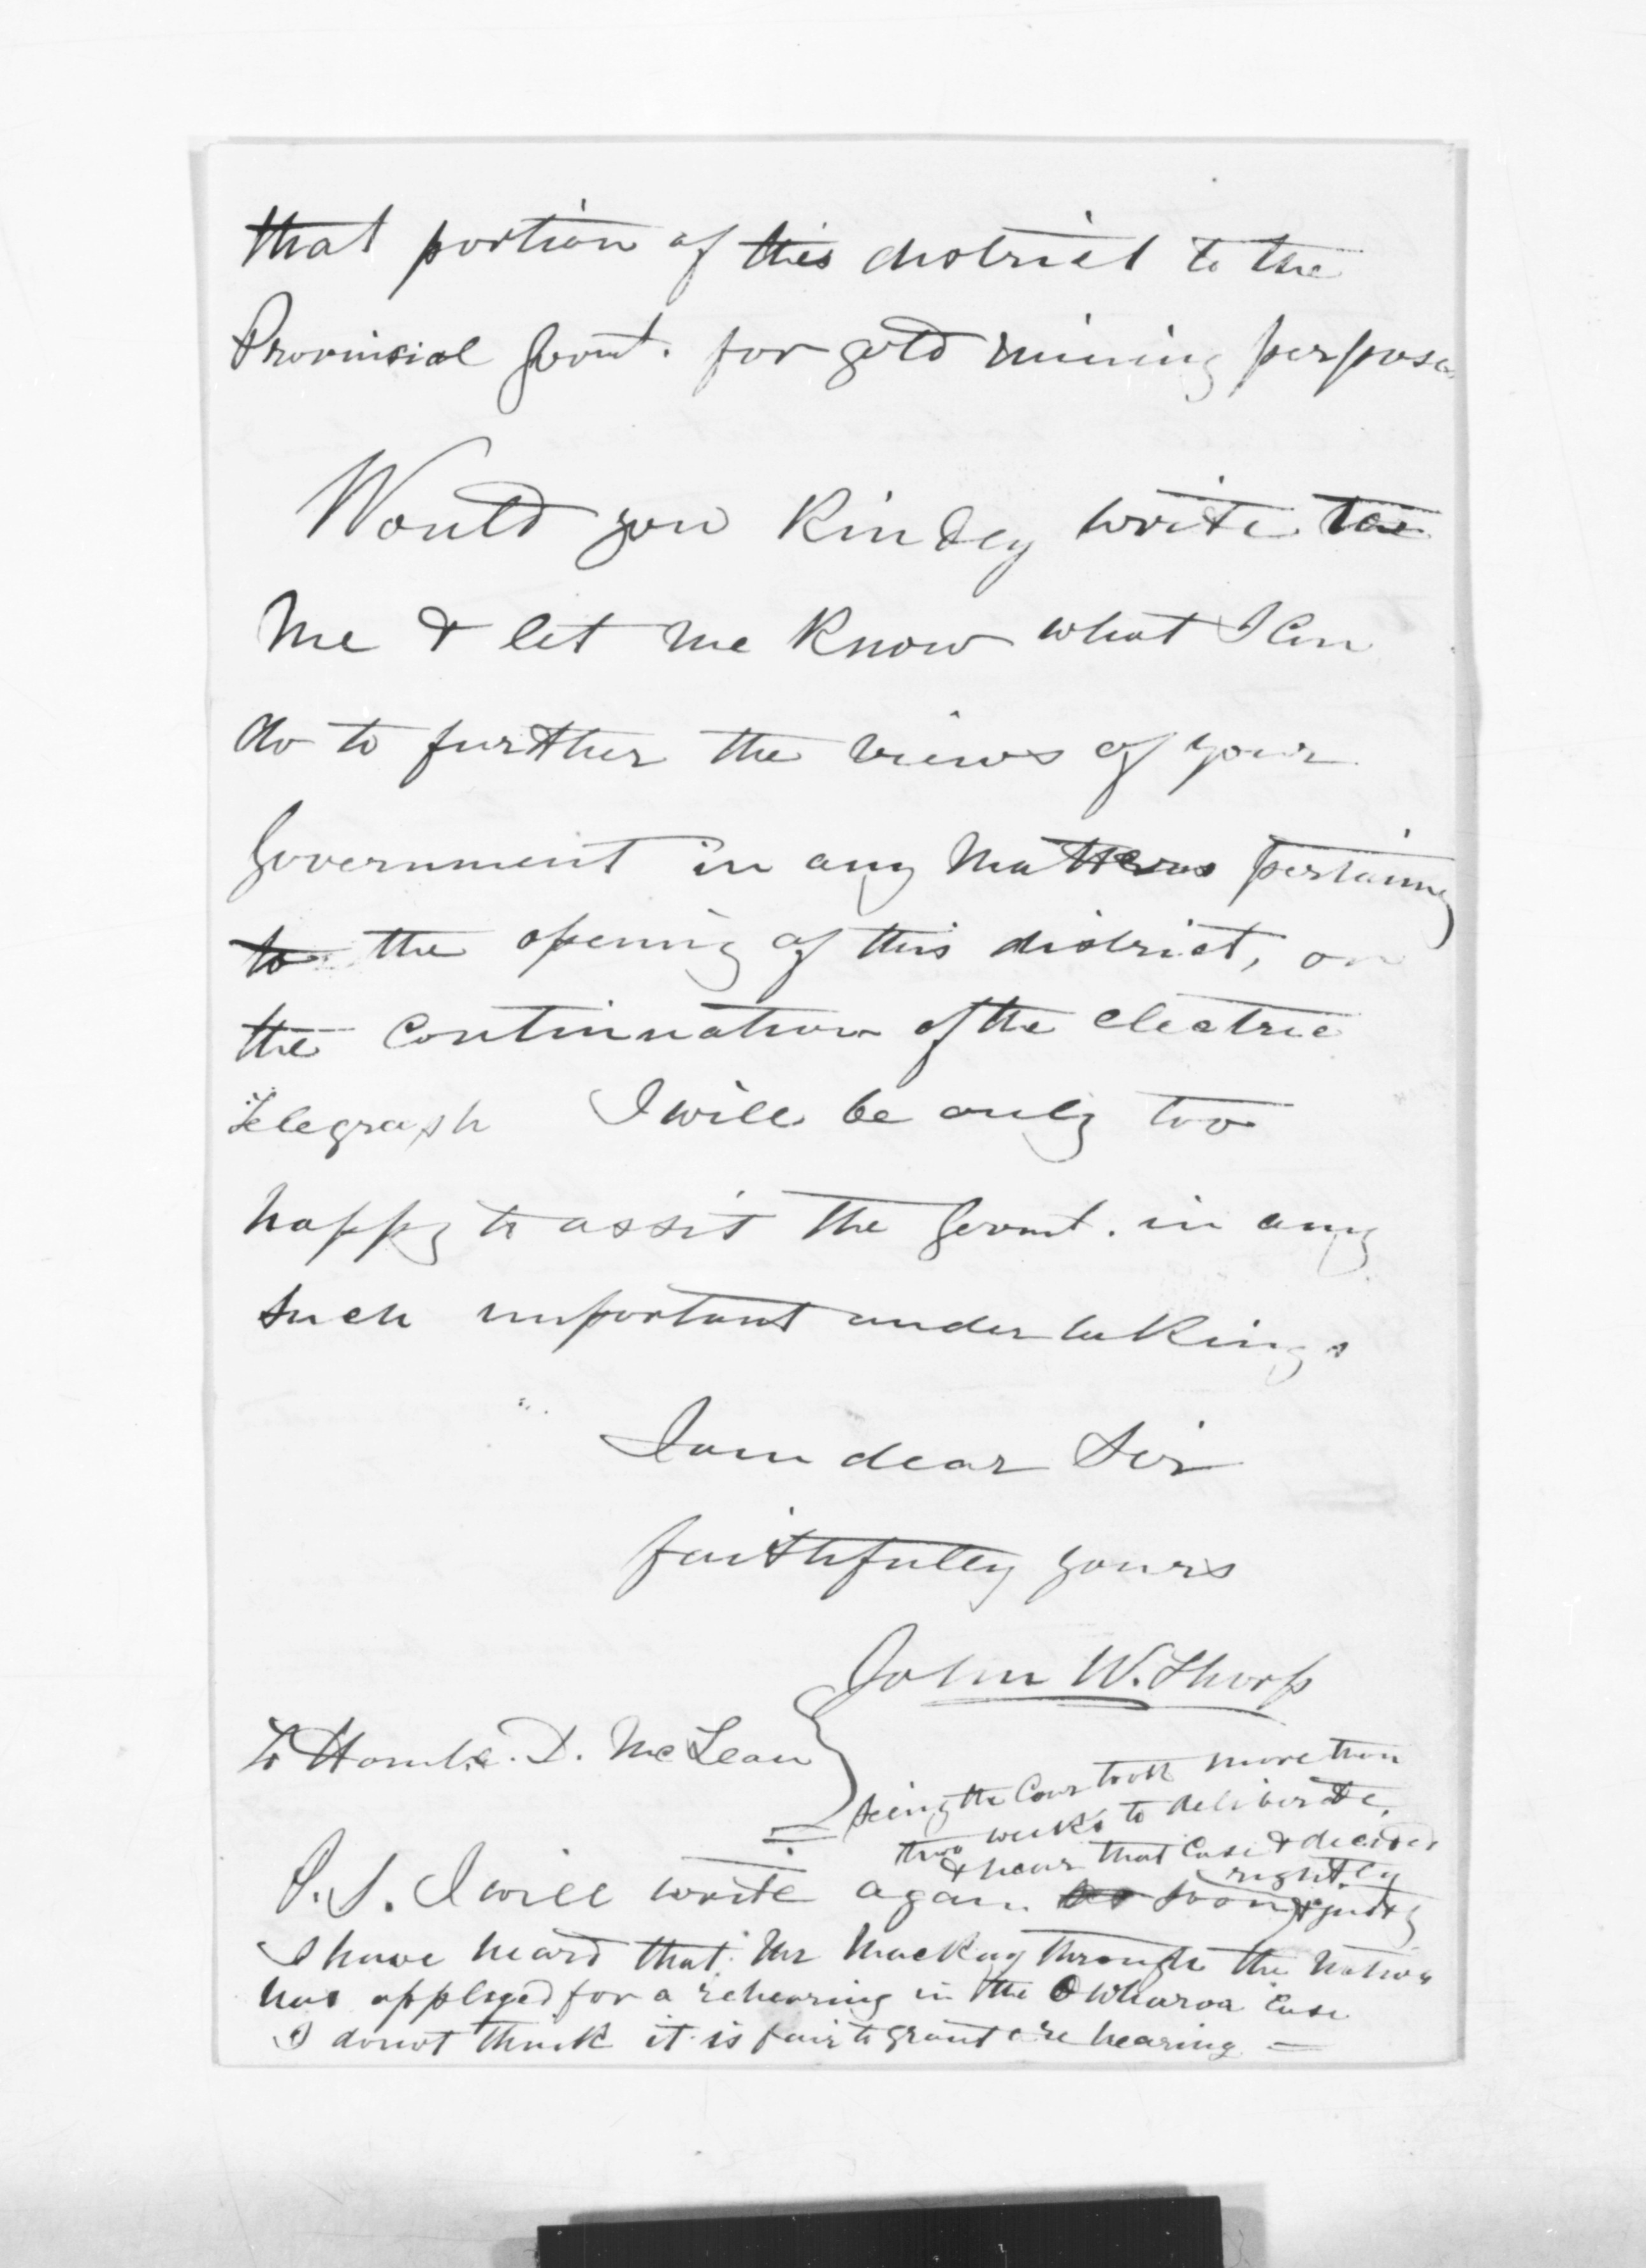 that portion of this district to the
Provinsial Govmt. for gold mining perposes
Would you Kindly write to
me & let me Know what I Can
do to further the views of your
Government in any Matters pertaining
to the opening of this district, or
the Continuation of the electric
Telegraph I will be only too
happy to assist the Govmt. in any
such important undertakings
I am dear Sir
faithfully yours
John W. Thorp
To Honble. D. McLean
P.S. I will write again soon
I have heard that Mr Mackay through the Natives
has applyed for a rehearing in the Owharoa Case
I do not think it is fair to grant a re hearing =
seeing the Cour took more than
two weeks to deliberate,
& hear that Case & decided
rightly
& justly